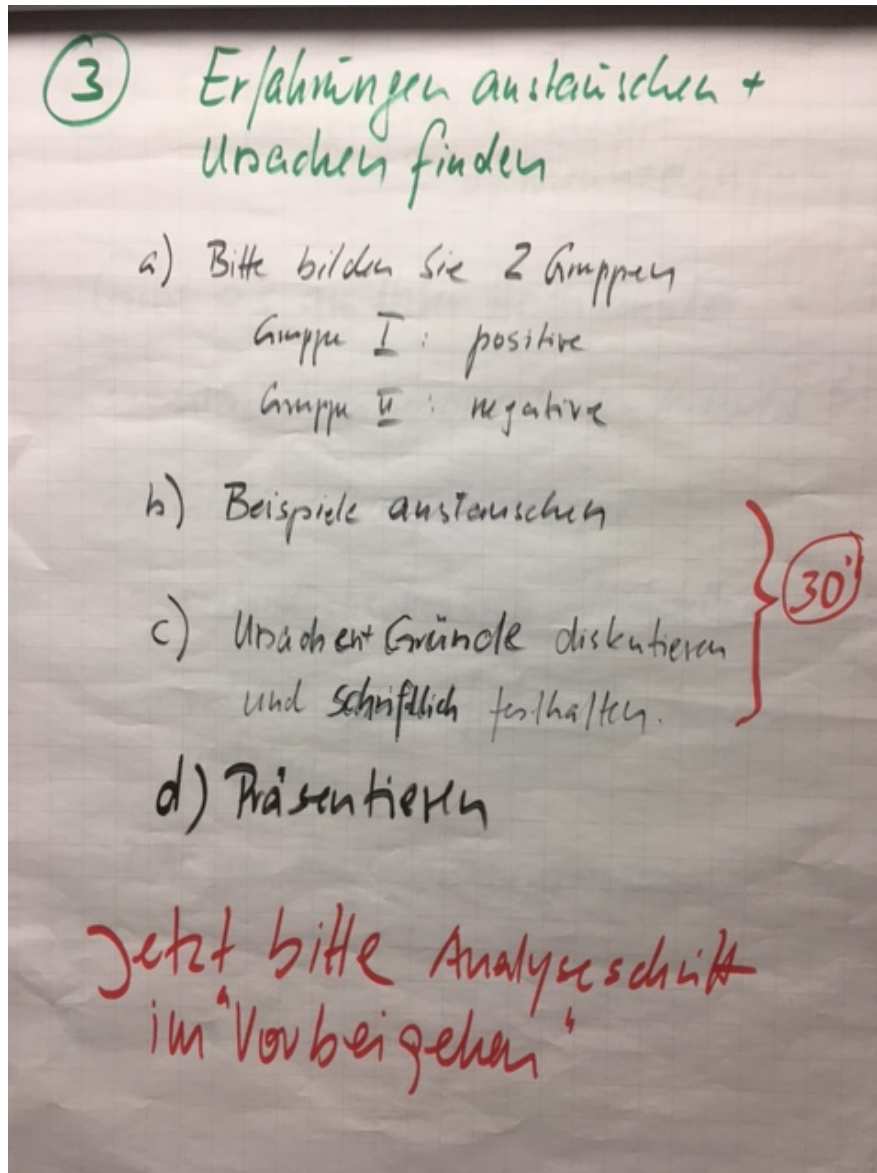 3 Erfahrungen austauschen +
Ursachen finden
a) Bitte bilden Sie 2 Gruppen
Gruppe I : positive
Gruppe II : negative
b) Beispiele austauschen
c) Ursachen + Gründe diskutieren
und schriftlich festhalten.
30'
d) Präsentieren
Jetzt bitte Analyseschritt
im "Vorbeigehen"